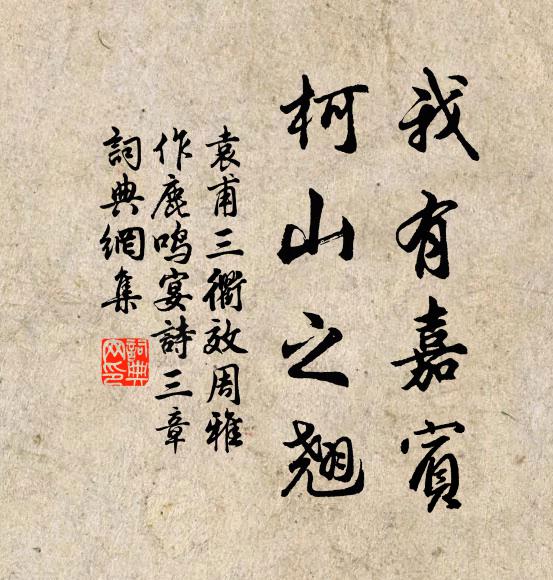 我有嘉賓
柯山之翹
袁甫三衢效周雅
作鹿鳴宴詩三章
詞典網集
詞典
网印